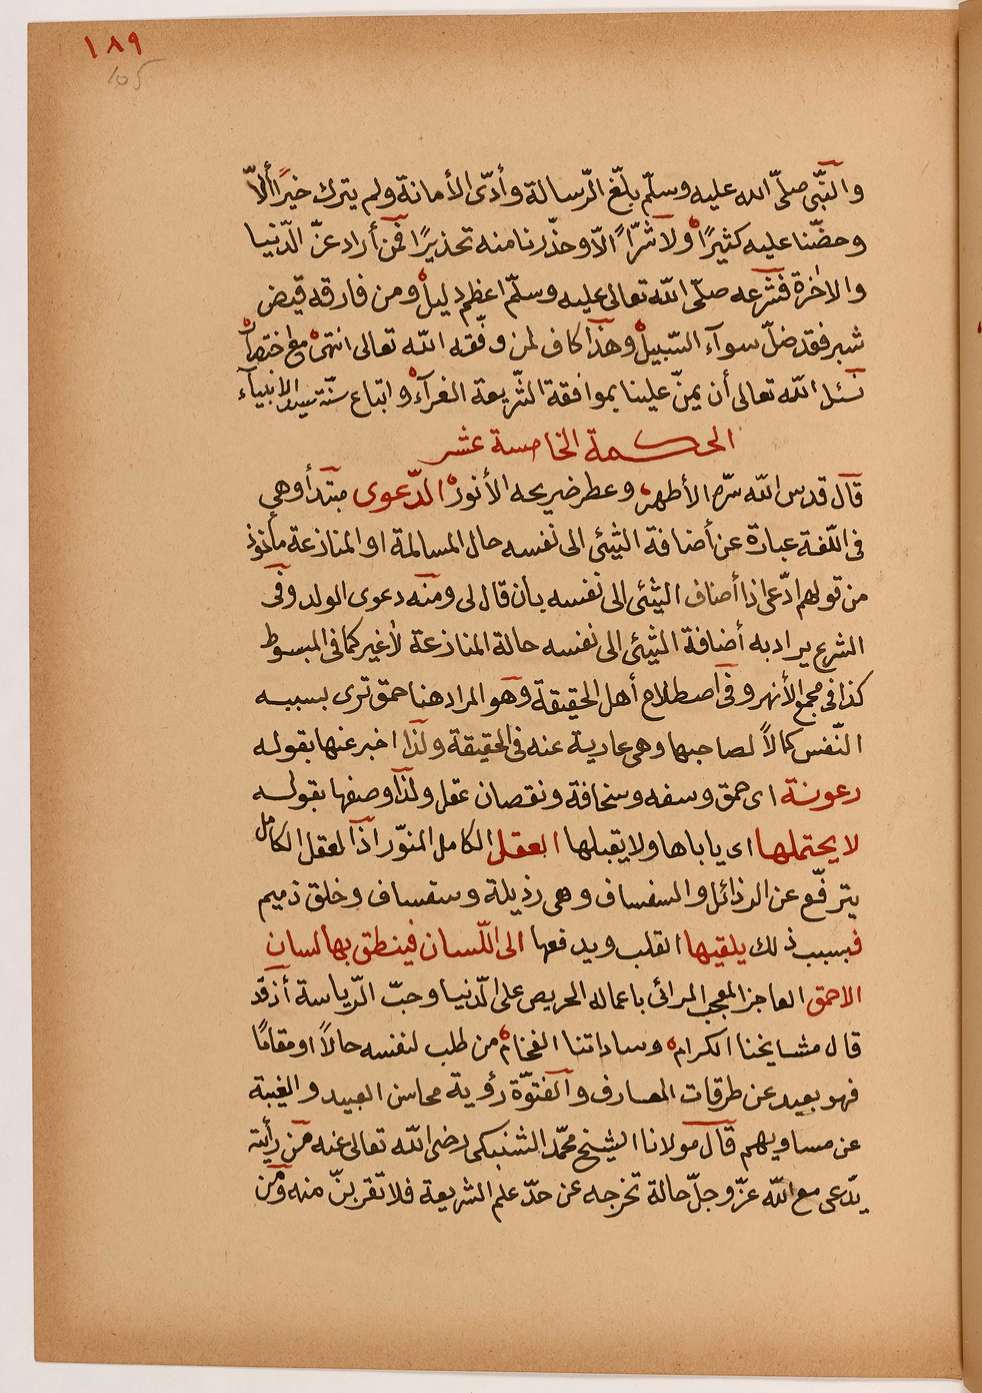 ١٨٩
105
والنّبّى صلّى الله عليه وسلّم بلّغ الرّسالة وأدّى الأمانة ولم يترك خيرًا ألاّ
وحضّنا عليه كثيرًا ولا شرّاً الاّ وحذّرنا منه تحذيرًا فمن أراد عزّ الدّنيا
والاخرة فشرعه صلّى الله تعالى عليه وسلّم اعظم دليل ومن فارقه قيض
شبر فقد ضلّ سوآء السّبيل وهذا كاف لمن وفّقه الله تعالى انتهى مع اختصار
نسئل الله تعالى أن يمنّ علينا بموافقة الشّريعة الغرآء واتباع سنّة سيد الانبيآء
الحكمة الخامسة عشر
قال قدس الله سرّه الأطهر وعطر ضريحه الأنور الدّعوى مبتدأ وهي
فى اللّغة عبارة عن أضافة الشّئى الى نفسه حال المسالمة او المنازعة مأخوذ
من قولهم ادّعى اذا أضاف الشّئى الى نفسه بأن قال لى ومنه دعوى الولد وفى
الشرع يراد به أضافة الشّئى الى نفسه حالة المنازعة لا غير كما فى المبسوط
كذا فى مجمع الأنهر وفى اصطلاح أهل الحقيقة وهو المراد هنا حمق ترى بسببه
النّفس كمالاً لصاحبها وهى عارية عنه فى الحقيقة ولذا اخبر عنها بقوله
رعونة اى حمق وسفه وسخافة ونقصان عقل ولذا وصفها بقوله
لا يحتملها اى ياباها ولا يقبلها العقل الكامل المنوّر اذ العقل الكامل
يترفّع عن الرذائل والسفساف وهى رذيلة وسفساف وخلق ذميم
فبسبب ذلك يلقيها القلب ويدفعها الى اللّسان فينطق بها لسان
الاحمق العاجز المعجب المرائى باعماله الحريص على الدّنيا وحبّ الرّياسة أذ قد
قال مشايخنا الكرام وساداتنا الفخام من طلب لنفسه حالاً او مقامًا
فهو بعيد عن طرقات المعارف والفتوّة رؤية محاسن العبيد والغيبة
عن مساويهم قال مولانا الشيخ محمّد الشنبكى رضى الله تعالى عنه من رأيته
يدّعى مع الله عزّ وجلّ حالة تخرجه عن حدّ علم الشريعة فلا تقربنّ منه ومن